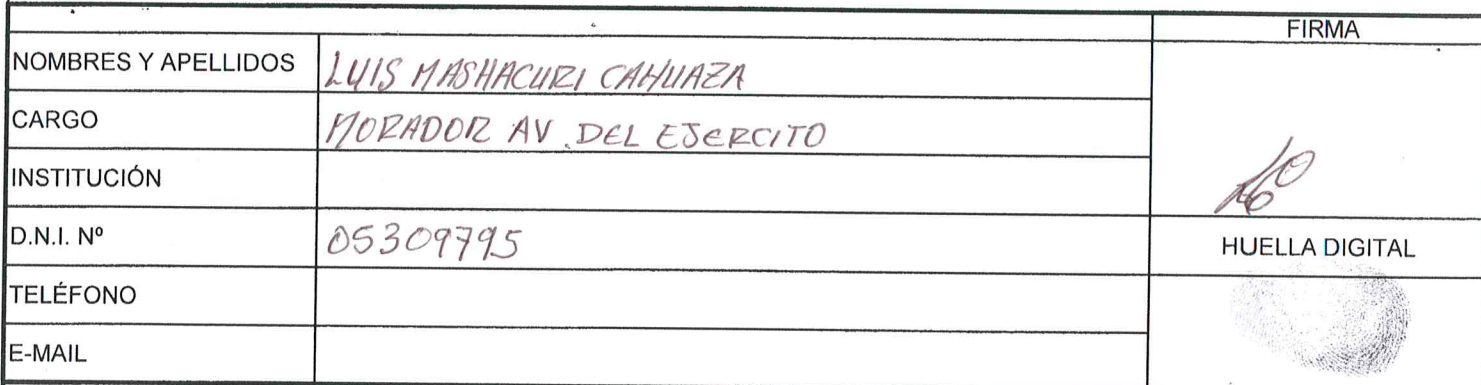 FIRMA
NOMBRES Y APELLIDOS LUIS MASHACURI CAHUAZA
CARGO MORADOR AV. DEL EJERCITO
INSTITUCIÓN
D.N.I. Nº 05309795
HUELLA DIGITAL
TELÉFONO
E-MAIL